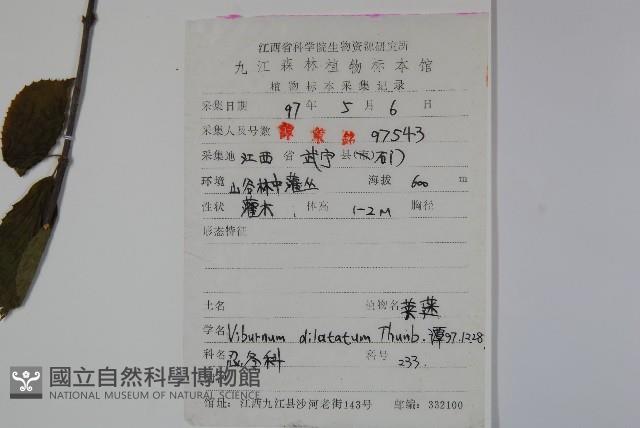 江西省科学院生物资源研究所
九江森林植物标本馆
植物标本采集记录
采集日期 97 年 5 月 6 日
采集人及号数 譚策銘 97543
采集地 江西 省 武宁 县(市) 石门
环境 山谷林中灌丛 海拔 600 m
性状 灌木 体高 1-2M 胸径
形态特征
土名 植物名 荚蒾
学名 Viburnum dilatatum Thunb. 潭97.1228
科名 忍冬科 科号 233.
國立自然科學博物館
NATIONAL MUSEUM OF NATURAL SCIENCE
馆址: 江西九江县沙河老街143号 邮编: 332100